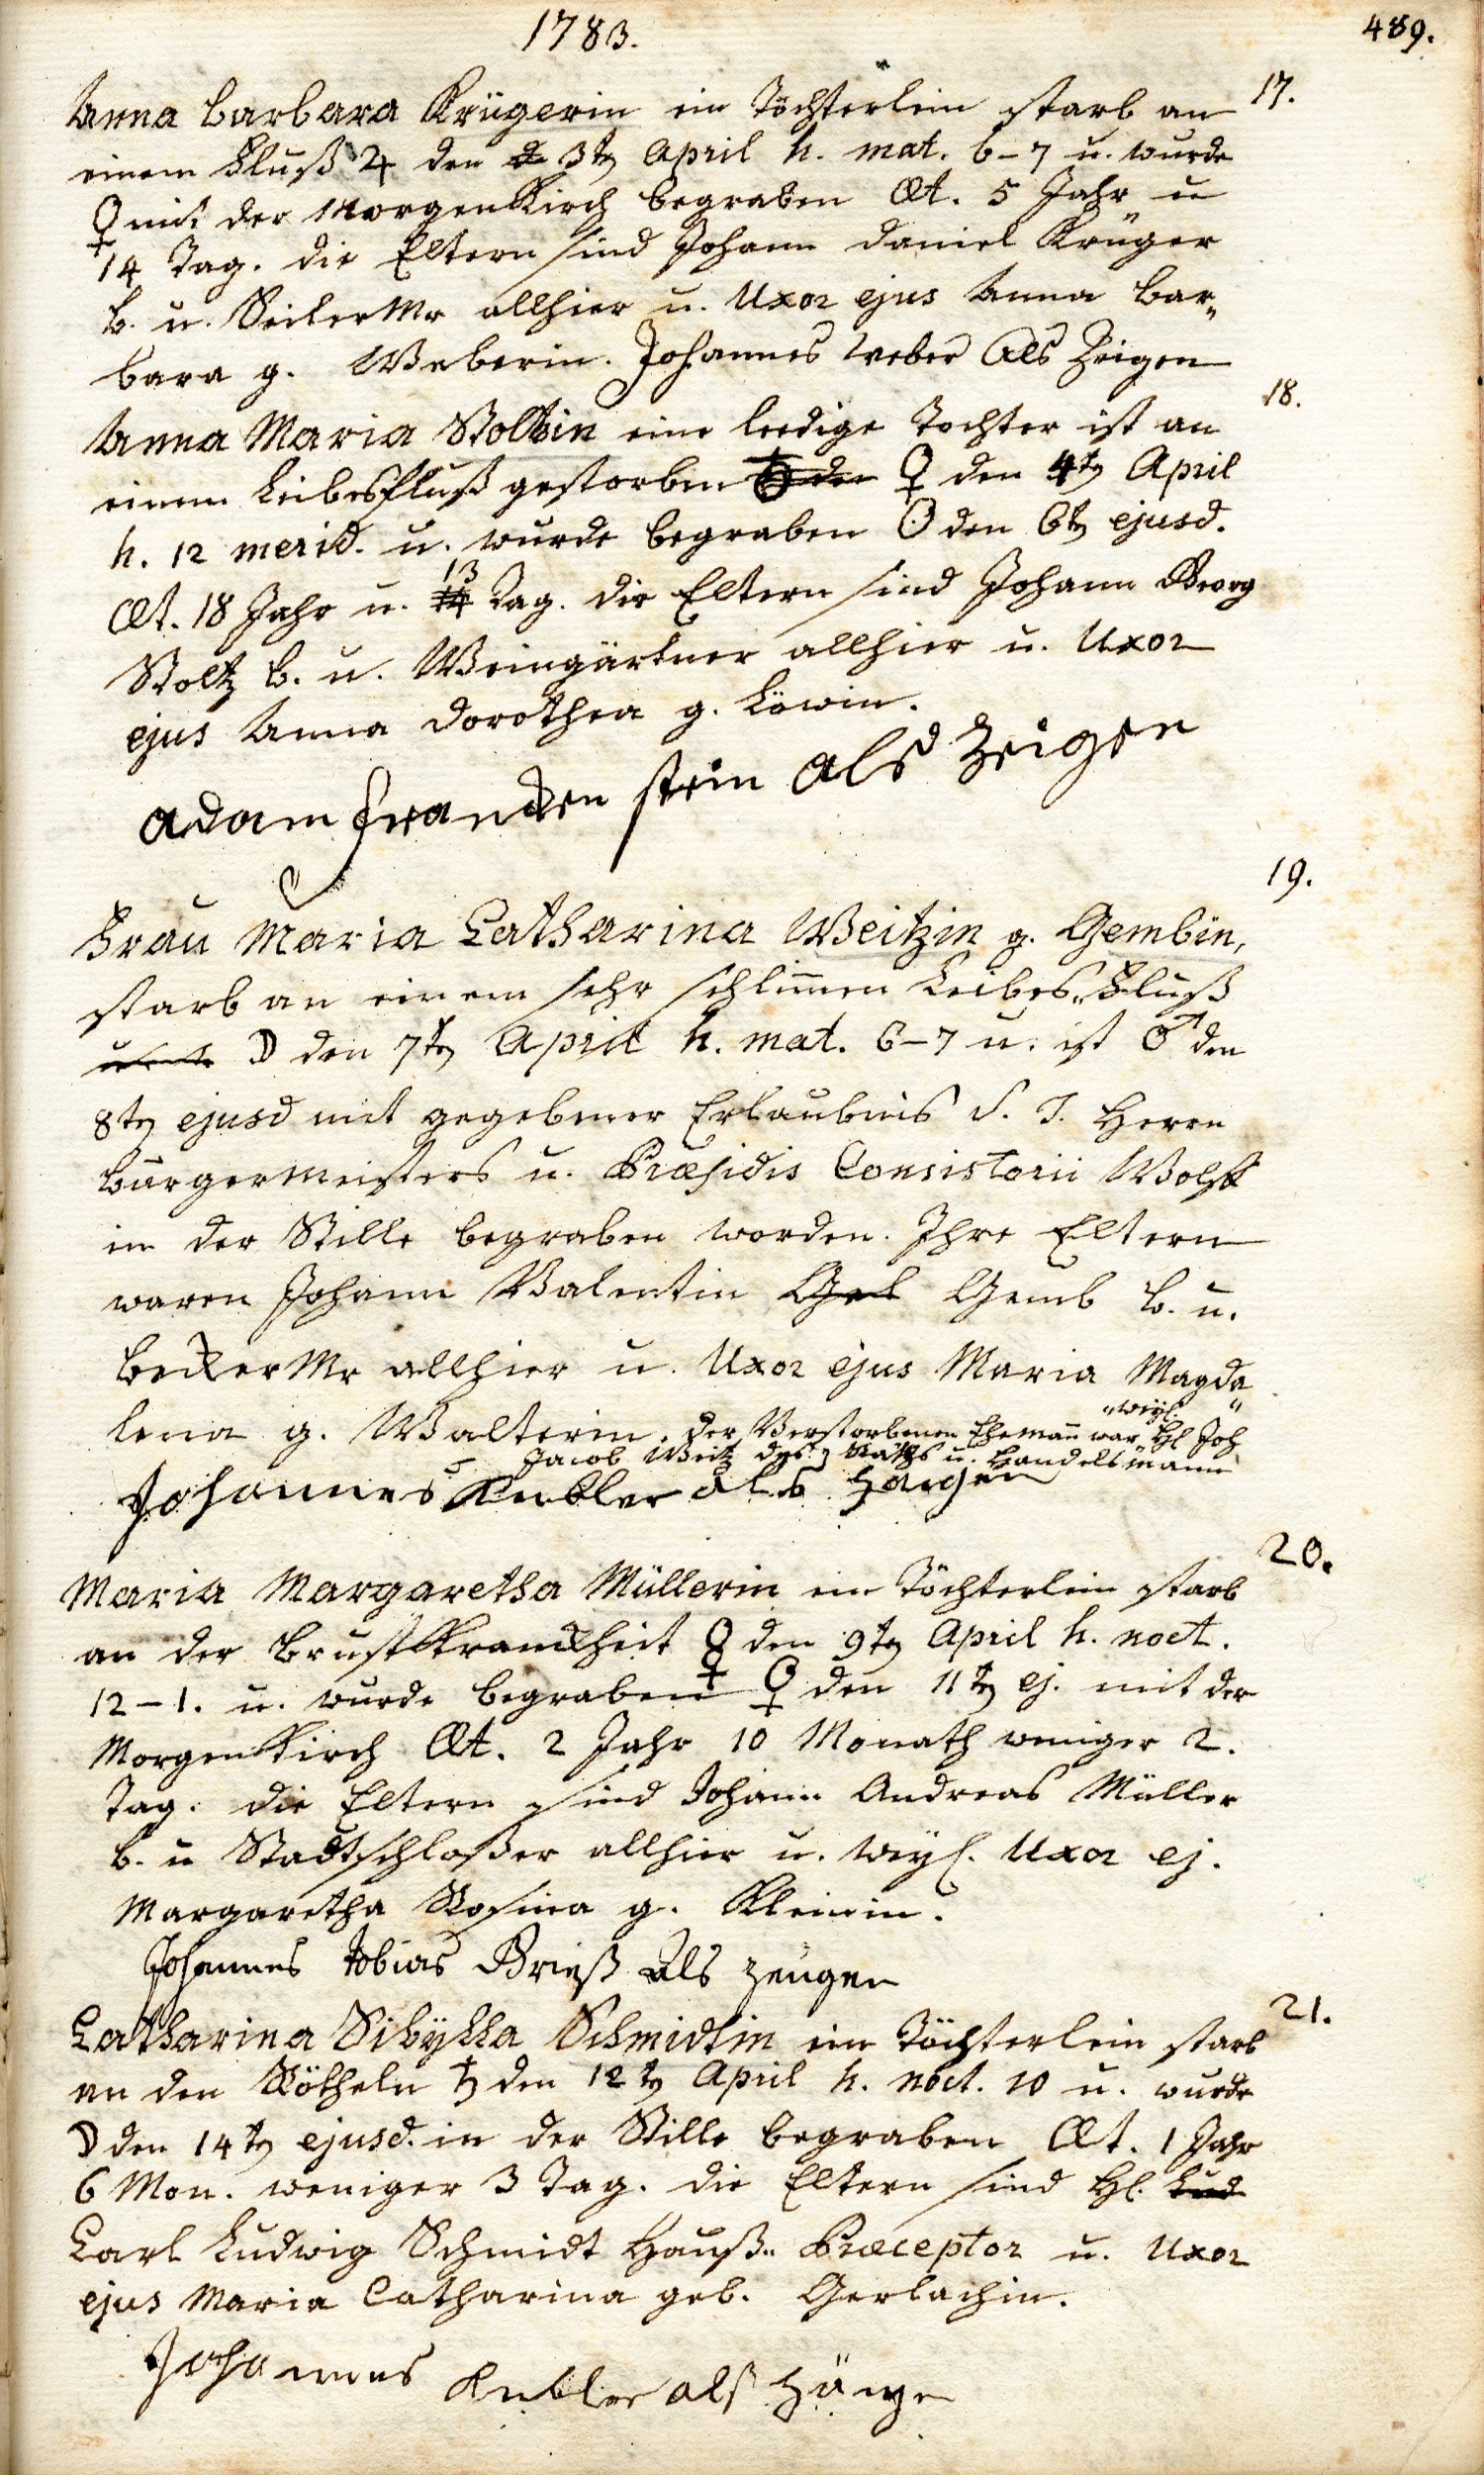 1783.
489.
17.
Anna Barbara Krügerin ein Töchterlein starb an
einem Fluß ♃ den 3tͤ April h. mat. 6-7 u. wurde
♀ mit der Morgenkirch begraben Æt. 5 Jahr u
14 Tag. die Eltern sind Johann Daniel Krüger
b. u. Seiler Mr allhier u. Uxor ejus Anna Bar„
bara g. Weberin. Johannes Weber als Zeigen
18.
Anna Maria Stoltzin eine ledige Tochter ist an
einem Leibesfluß gestorben ♀ den 4tͤ April
h. 12 merid. u. wurde begraben ☉ den 6tͤ ejusd.
Æt. 18 Jahr u. 13 Tag. die Eltern sind Johann Georg
Stoltz b. u. Weingärtner allhier u. Uxor
ejus Anna Dorothea g. Löwin.
adam francken stein als Zeigen
19.
Frau Maria Catharina Weitzin g. Gembin,
starb an einem sehr schlim̄en Leibes„Fluß
☽ den 7tͤ April h. mat. 6-7 u. ist ♂ den
8tͤ ejusd mit gegebener Erlaubnis S. T. Herrn
Burgermeisters u. Præsidis Consistorii Wolff
in der Stille begraben worden. Ihre Eltern
waren Johann Valentin Gel Gemb b. u.
Becker Mr allhier u. Uxor ejus Maria Magda„
lena g. Walterin. der Verstorbenen Eheman̄ war „weyl. H. Joh
Jacob Weitz des Raths u. Handelsmann
Johannes Kubler als Zeigen
20.
Maria Margaretha Müllerin ein Töchterlein starb
an der Brustkranckheit den 9tͤ April h. noct.
12-1. u. wurde begraben ♀ den 11tͤ ej. mit der
Morgenkirch Æt. 2 Jahr 10 Monath weniger 2.
Tag. die Eltern sind Johann Andreas Müller
b. u Stadtschloßer allhier u. weyl. Uxor ej.
Margaretha Rosina g. Kleinin.
Johannes tobias Brieß als zeugen
21.
Catharina Sibylla Schmidtin ein Töchterlein starb
an den Rötheln ♄ den 12tͤ April h. noct. 10 u. wurde
☽ den 14tͤ ejusd. in der Stille begraben Æt. 1 Jahr
6 Mon. weniger 3 Tag. die Eltern sind H. Lud
Carl Ludwig Schmidt Hauß„ Præceptor u. Uxor
ejus Maria Catharina geb. Gerlachin.
Johannes Kubler als Zäigen